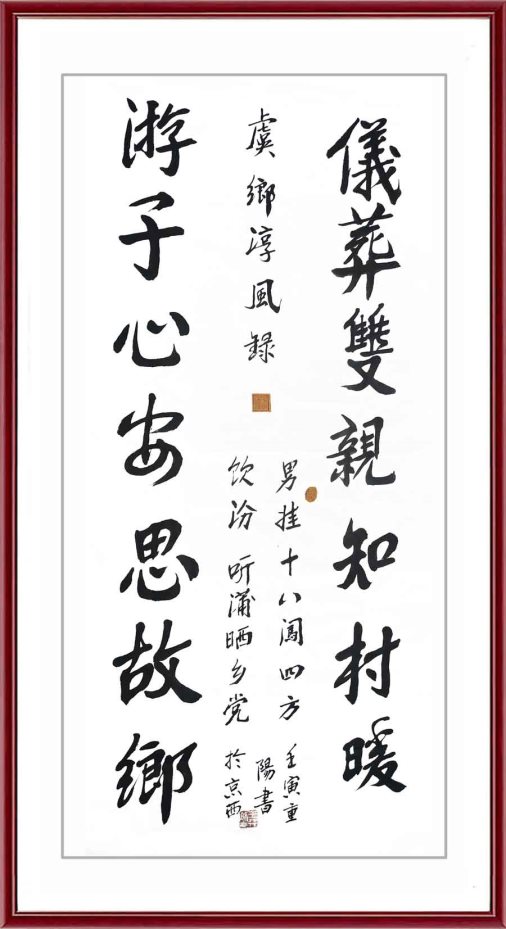 儀葬雙親知村暖
虞鄉淳風錄
男挂十八闯四方
饮汾听蒲晒乡党
壬寅重
陽書
於京西
游子心安思故鄉